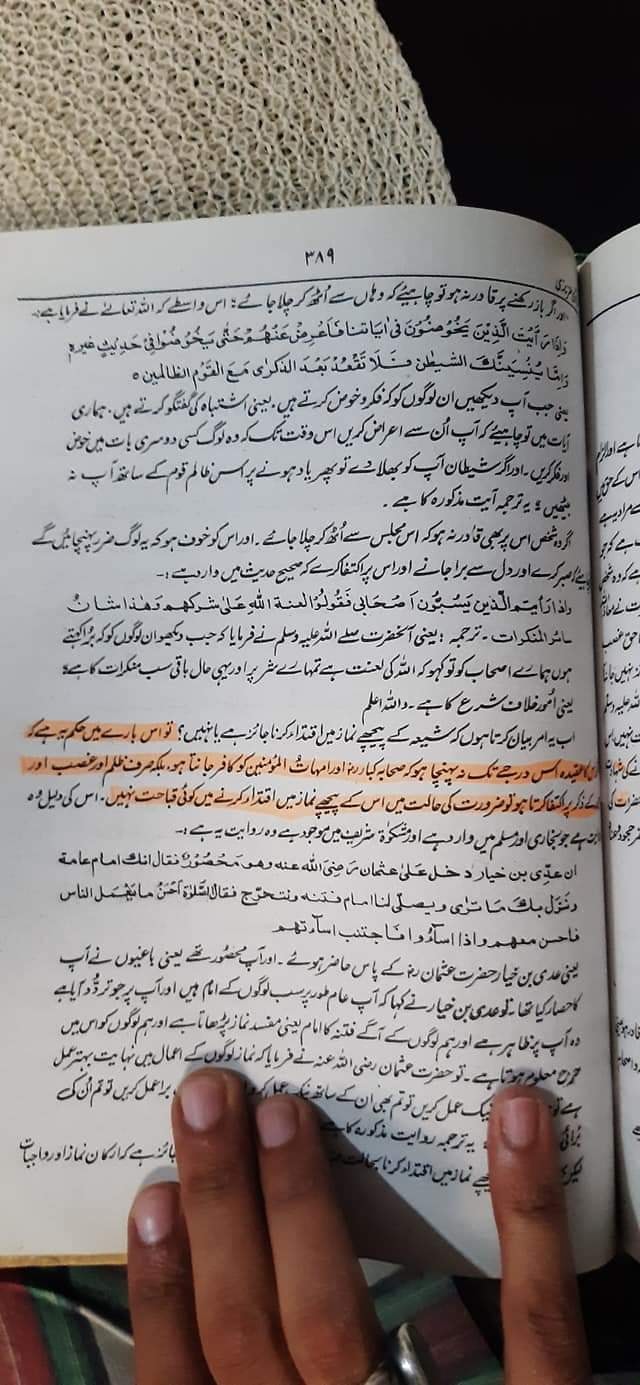 ۳۸۹
اور اگر باز رکھنے پر قادر نہ ہو تو چاہیئے کہ وہاں سے اُٹھ کر چلا جائے؛ اس واسطے کہ اللہ تعالےٰ نے فرمایا ہے:۔
وَاِذَا رَاَیْتَ الَّذِیْنَ یَخُوْضُوْنَ فِیْ اٰیَاتِنَا فَاَعْرِضْ عَنْھُمْ حَتّٰی یَخُوْضُوْا فِیْ حَدِیْثٍ غَیْرِہٖ
وَاِمَّا یُنْسِیَنَّکَ الشَّیْطٰنُ فَلَا تَقْعُدْ بَعْدَ الذِّکْرٰی مَعَ الْقَوْمِ الظَّالِمِیْنَ ○
یعنی جب آپ دیکھیں ان لوگوں کو کہ فکر و خوض کرتے ہیں، یعنی اشتباہ کی گفتگو کرتے ہیں، ہماری
آیات میں تو چاہیئے کہ آپ اُن سے اعراض کریں اس وقت تک کہ وہ لوگ کسی دوسری بات میں خوض
اور فکر کریں۔ اور اگر شیطان آپ کو بھلا دے تو پھر یاد ہونے پر اس ظالم قوم کے ساتھ آپ نہ
بیٹھیں؛ یہ ترجمہ آیت مذکورہ کا ہے۔
اگر وہ شخص اس پر بھی قادر نہ ہو کہ اس مجلس سے اُٹھ کر چلا جائے۔ اور اس کو خوف ہو کہ یہ لوگ ضرر پہنچائیں گے
صبر کرے اور دل سے برا جانے اور اس پر اکتفا کرے کہ صحیح حدیث میں وارد ہے:۔
وَاِذَا رَاَیْتُمُ الَّذِیْنَ یَسُبُّوْنَ اَصْحَابِیْ فَقُوْلُوْا لَعْنَۃُ اللّٰہِ عَلٰی شَرِّکُمْ وَھٰذَا شَانُ
سَائِرِ الْمُنْکَرَاتِ۔ ترجمہ؛ یعنی آنحضرت صلے اللہ علیہ وسلم نے فرمایا کہ جب دیکھو ان لوگوں کو کہ بُرا کہتے
ہوں ہمارے اصحاب کو تو کہو کہ اللہ کی لعنت ہے تمہارے شر پر اور یہی حال باقی سب منکرات کا ہے؛
یعنی اُمور خلاف شرع کا ہے۔ واللہ اعلم
اب یہ امر بیان کرتا ہوں کہ شیعہ کے پیچھے نماز میں اقتداء کرنا جائز ہے یا نہیں؟ تو اس بارے میں حکم یہ ہے کہ
کا عقیدہ اس درجے تک نہ پہنچا ہو کہ صحابہ کبار رضہ اور امہات المؤمنین کو کافر جانتا ہو، بلکہ صرف ظلم اور غصب اور
کے ذکر پر اکتفا کرتا ہو تو ضرورت کی حالت میں اس کے پیچھے نماز میں اقتداء کرنے میں کوئی قباحت نہیں۔ اس کی دلیل وہ
ہے جو بخاری اور مسلم میں وارد ہے اور مشکوٰۃ شریف میں موجود ہے وہ روایت یہ ہے:۔
ان عدی بن خیار دخل علیٰ عثمان رَضِیَ اللّٰہُ عنہ وھو مَحْصُوْرٌ فقال انک امام عامۃ
وَنَزَلَ بِکَ مَا تَرٰی ویصلّی لنا امام فتنۃ ونتحرّج فقال الصَّلوٰۃ اَحْسَنُ مَا یَعْمَلُ الناس
فاحسن معھم واذا اساؤا فاجتنب اساءتھم
یعنی عدی بن خیار حضرت عثمان رضہ کے پاس حاضر ہوئے۔ اور آپ محصور تھے یعنی باغیوں نے آپ
کا حصار کیا تھا۔ تو عدی بن خیار نے کہا کہ آپ عام طور پر سب لوگوں کے امام ہیں اور آپ پر جو تردُّد آیا ہے
وہ آپ پر ظاہر ہے اور ہم لوگوں کے آگے فتنہ کا امام یعنی مفسد نماز پڑھاتا ہے اور ہم لوگوں کو اس میں
حرج معلوم ہوتا ہے۔ تو حضرت عثمان رضی اللہ عنہ نے فرمایا کہ نماز لوگوں کے اعمال میں نہایت بہتر عمل
ہے نیک عمل کریں تو تم بھی ان کے ساتھ نیک عمل کرو عمل کریں تو تم اُن کی
بُرائی یہ ترجمہ روایت مذکورہ کا ہے
پیچھے نماز میں اقتداء کرنا بحالت جائز ہے کہ ارکان نماز اور واجبات